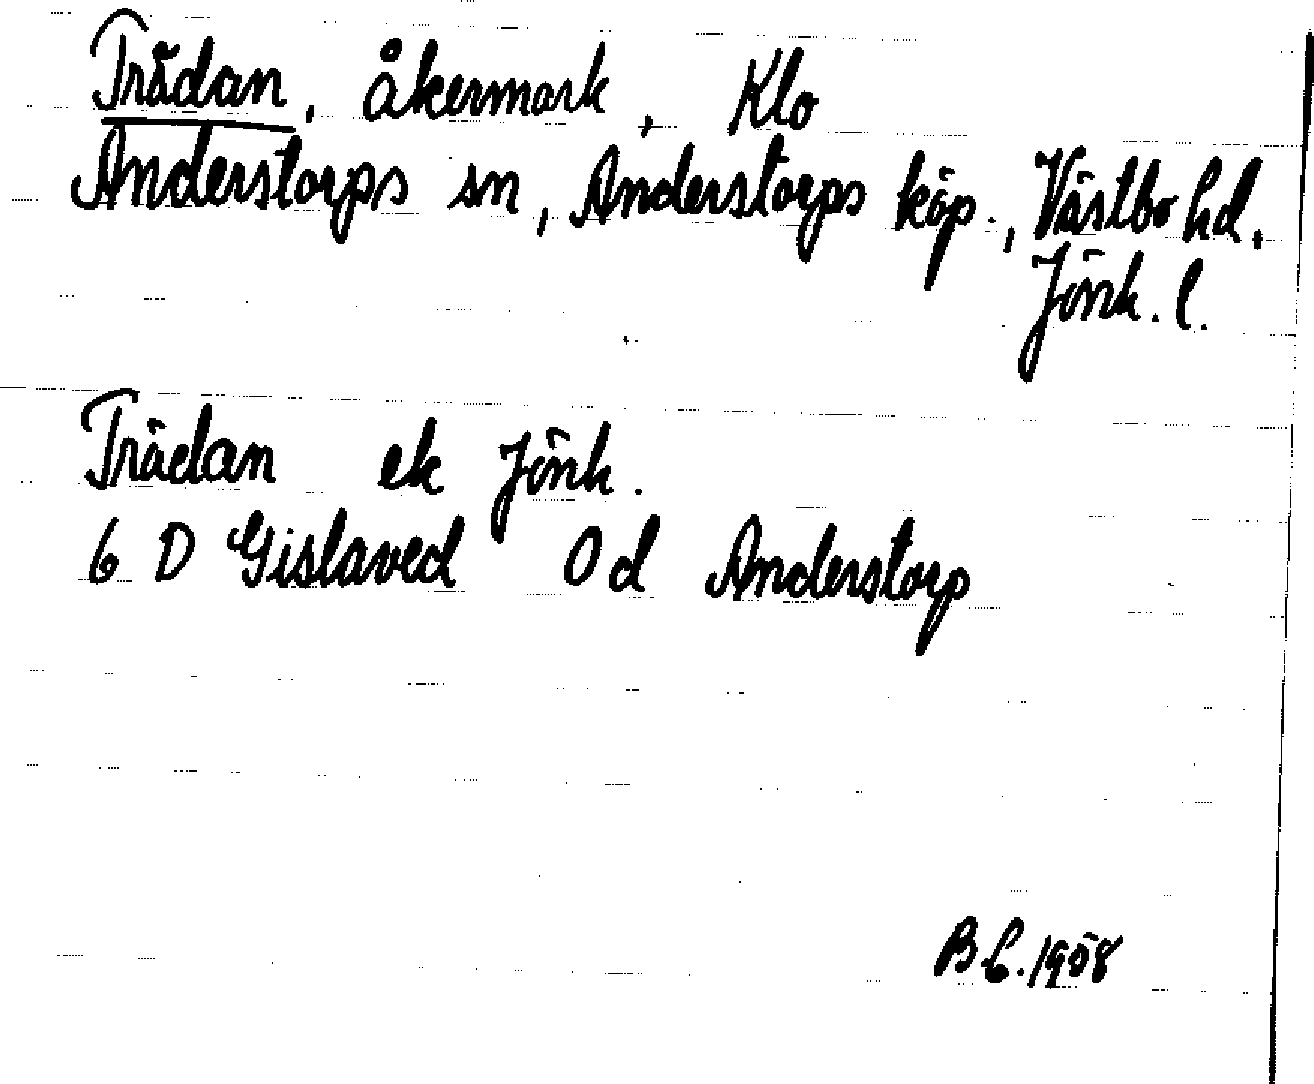 Trädan, åkermark, Klo
Anderstorps sn, Anderstorps köp., Västbo hd.
Jönk. l.
Trädan ek Jönk.
6 D Gislaved 0d Anderstorp
1958